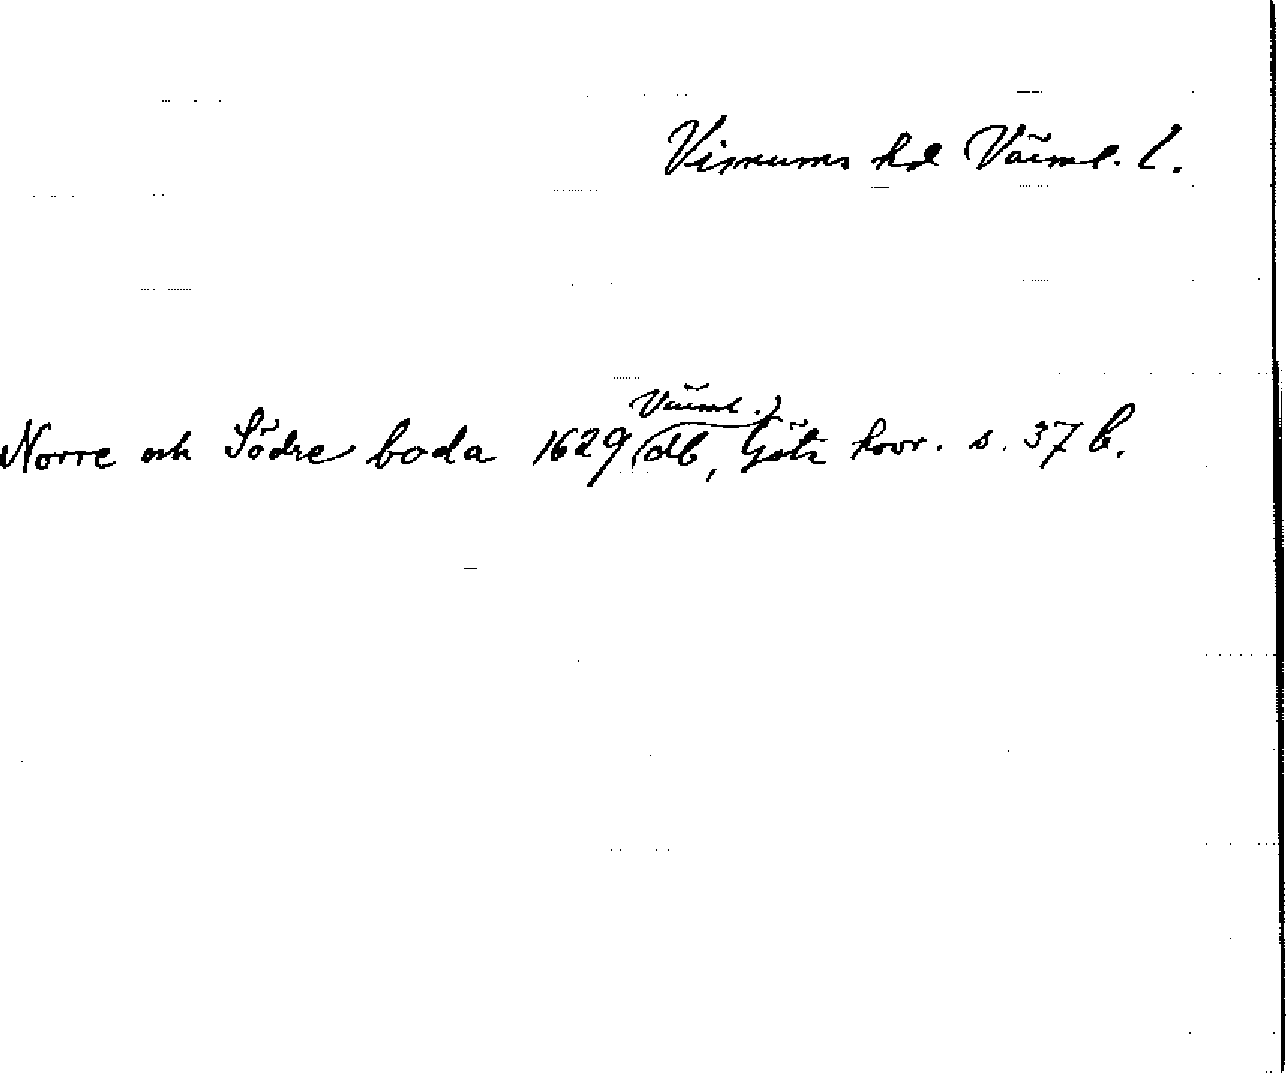 Visnums hd Värml. l.
Värml.
Norre och Södre boda 1629 (db, Göta hovr. s. 37 b.